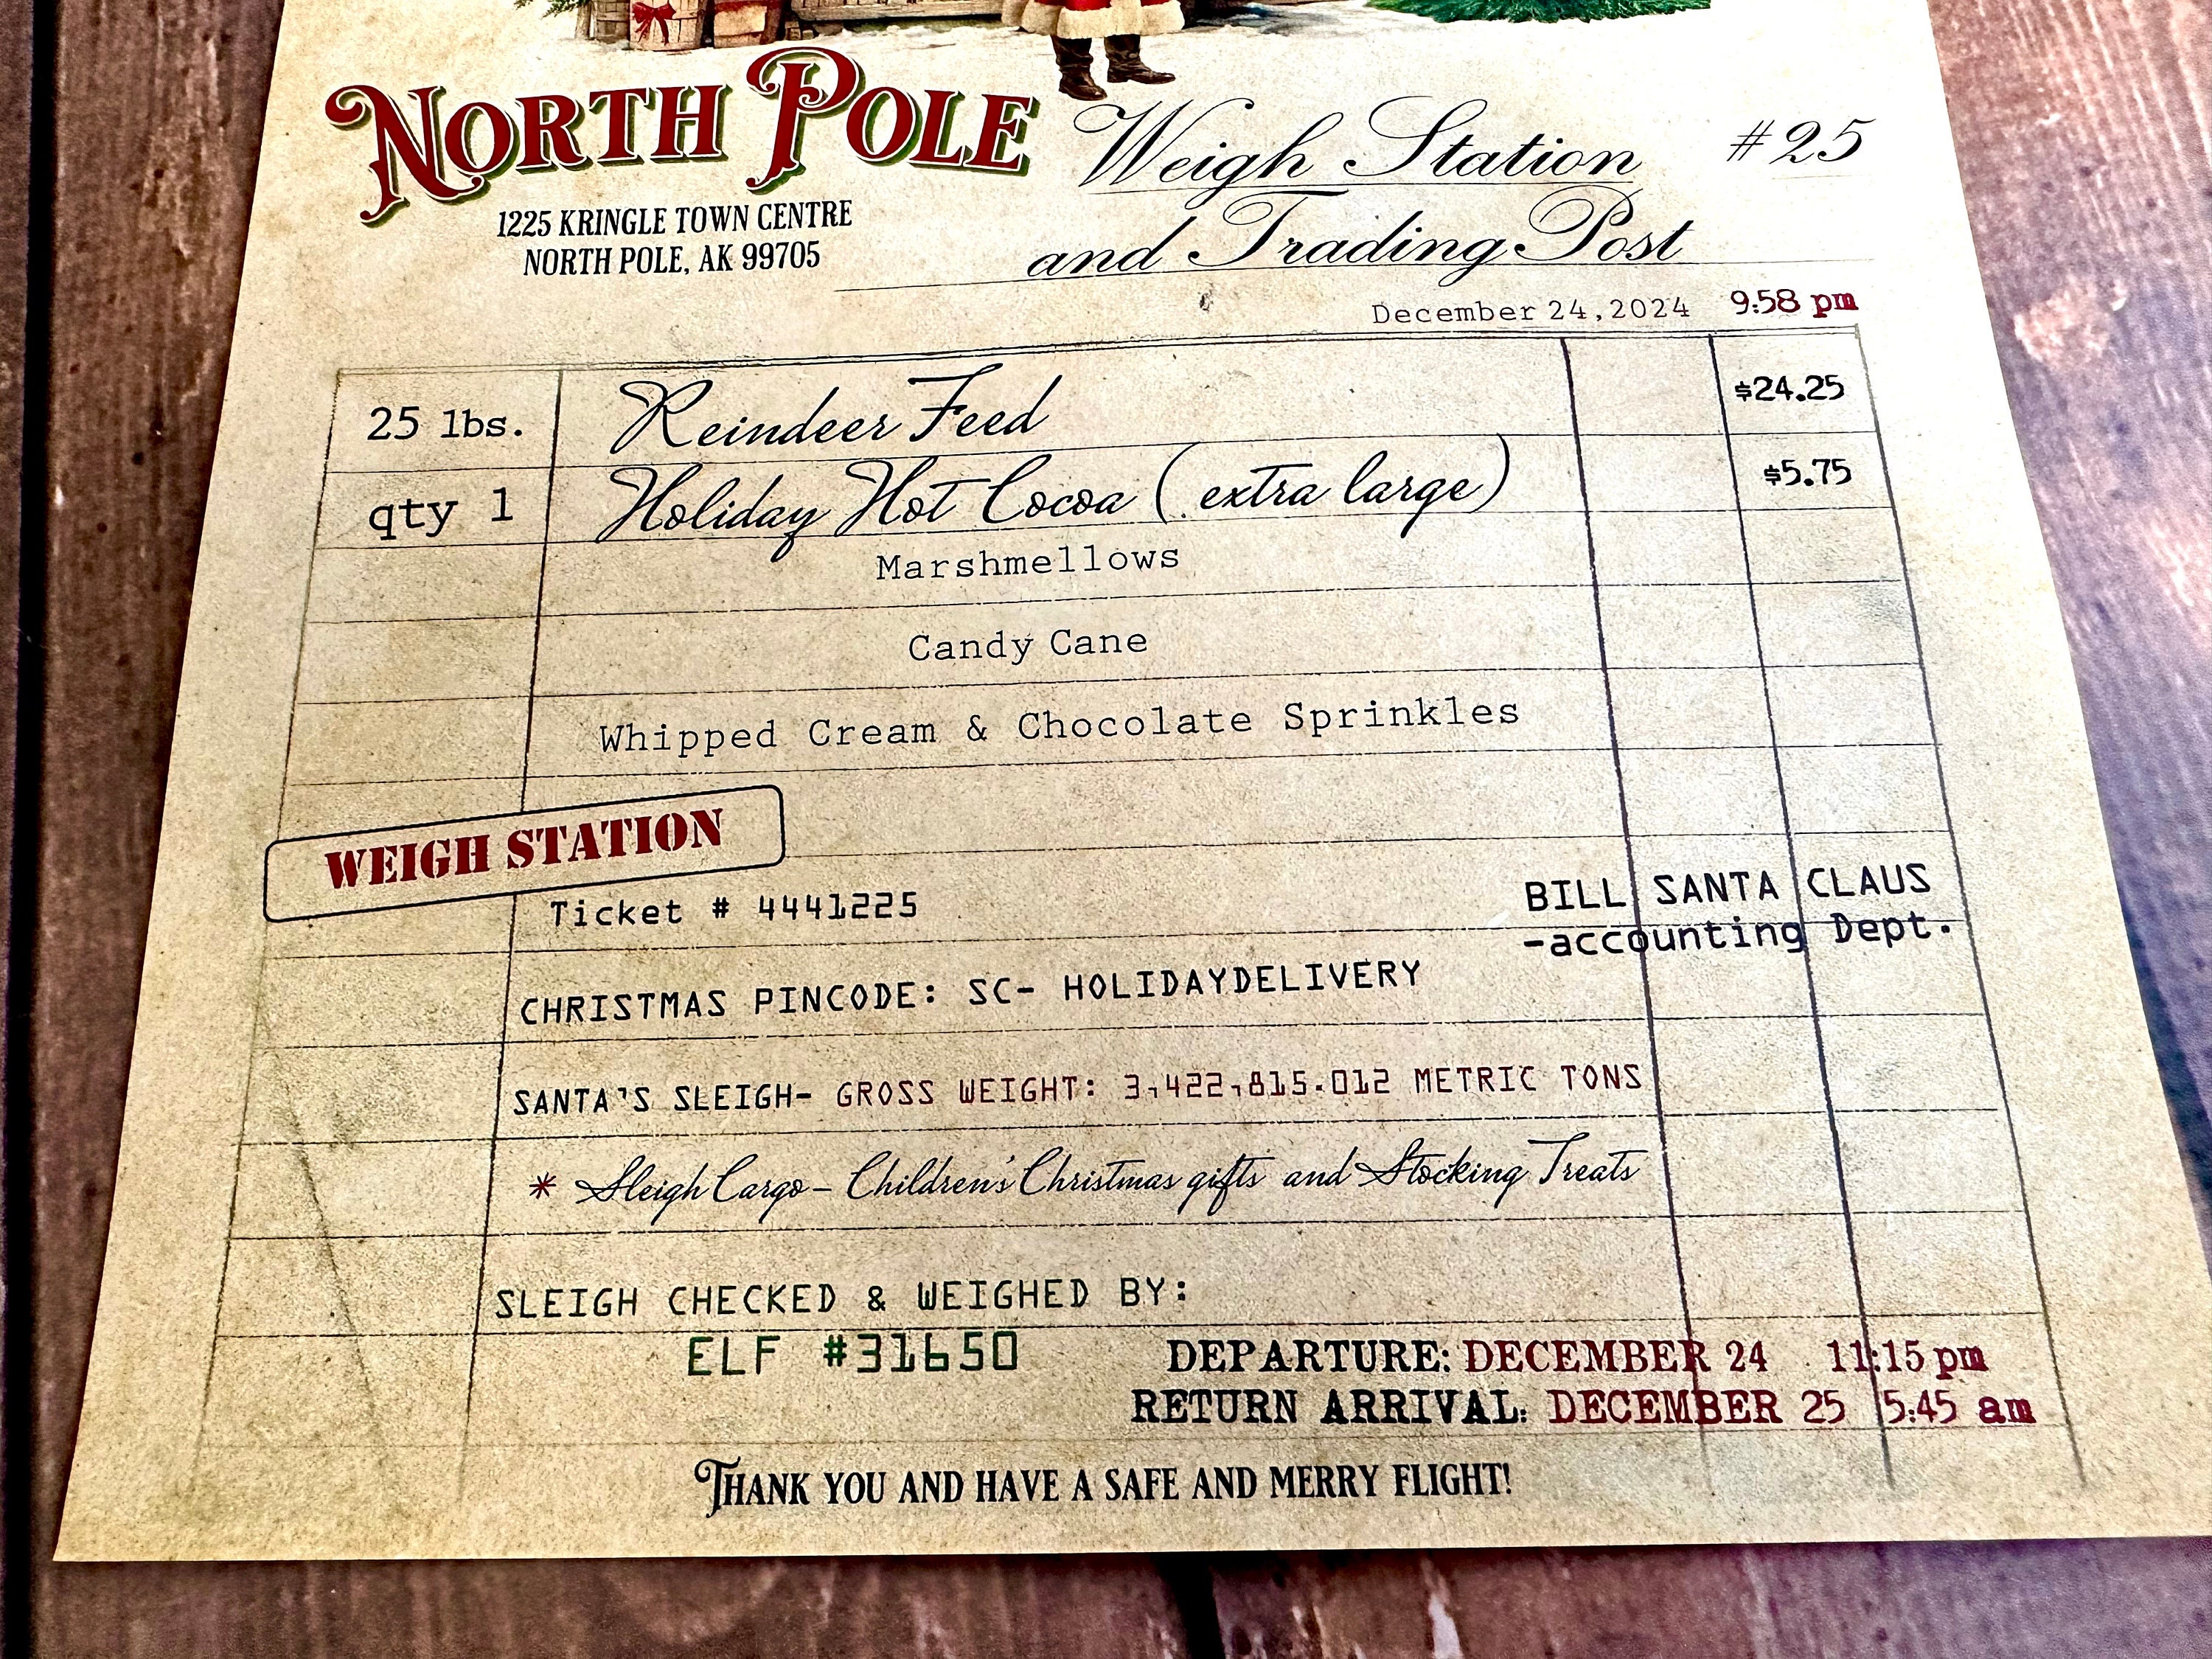 NORTH POLE Weigh Station #25
1225 KRINGLE TOWN CENTRE
and Trading Post
NORTH POLE, AK 99705
December 24,2024 9:58 pm
25 lbs. Reindeer Feed $24.25
qty 1 Holiday Hot Cocoa (extra large) $5.75
Marshmellows
Candy Cane
Whipped Cream & Chocolate Sprinkles
WEIGH STATION
Ticket # 4441225
BILL SANTA CLAUS
-accounting Dept.
CHRISTMAS PINCODE: SC- HOLIDAYDELIVERY
SANTA'S SLEIGH- GROSS WEIGHT: 3,422,815.012 METRIC TONS
* Sleigh Cargo - Children's Christmas gifts and Stocking Treats
SLEIGH CHECKED & WEIGHED BY:
ELF #31650
DEPARTURE: DECEMBER 24 11:15 pm
RETURN ARRIVAL: DECEMBER 25 5:45 am
THANK YOU AND HAVE A SAFE AND MERRY FLIGHT!